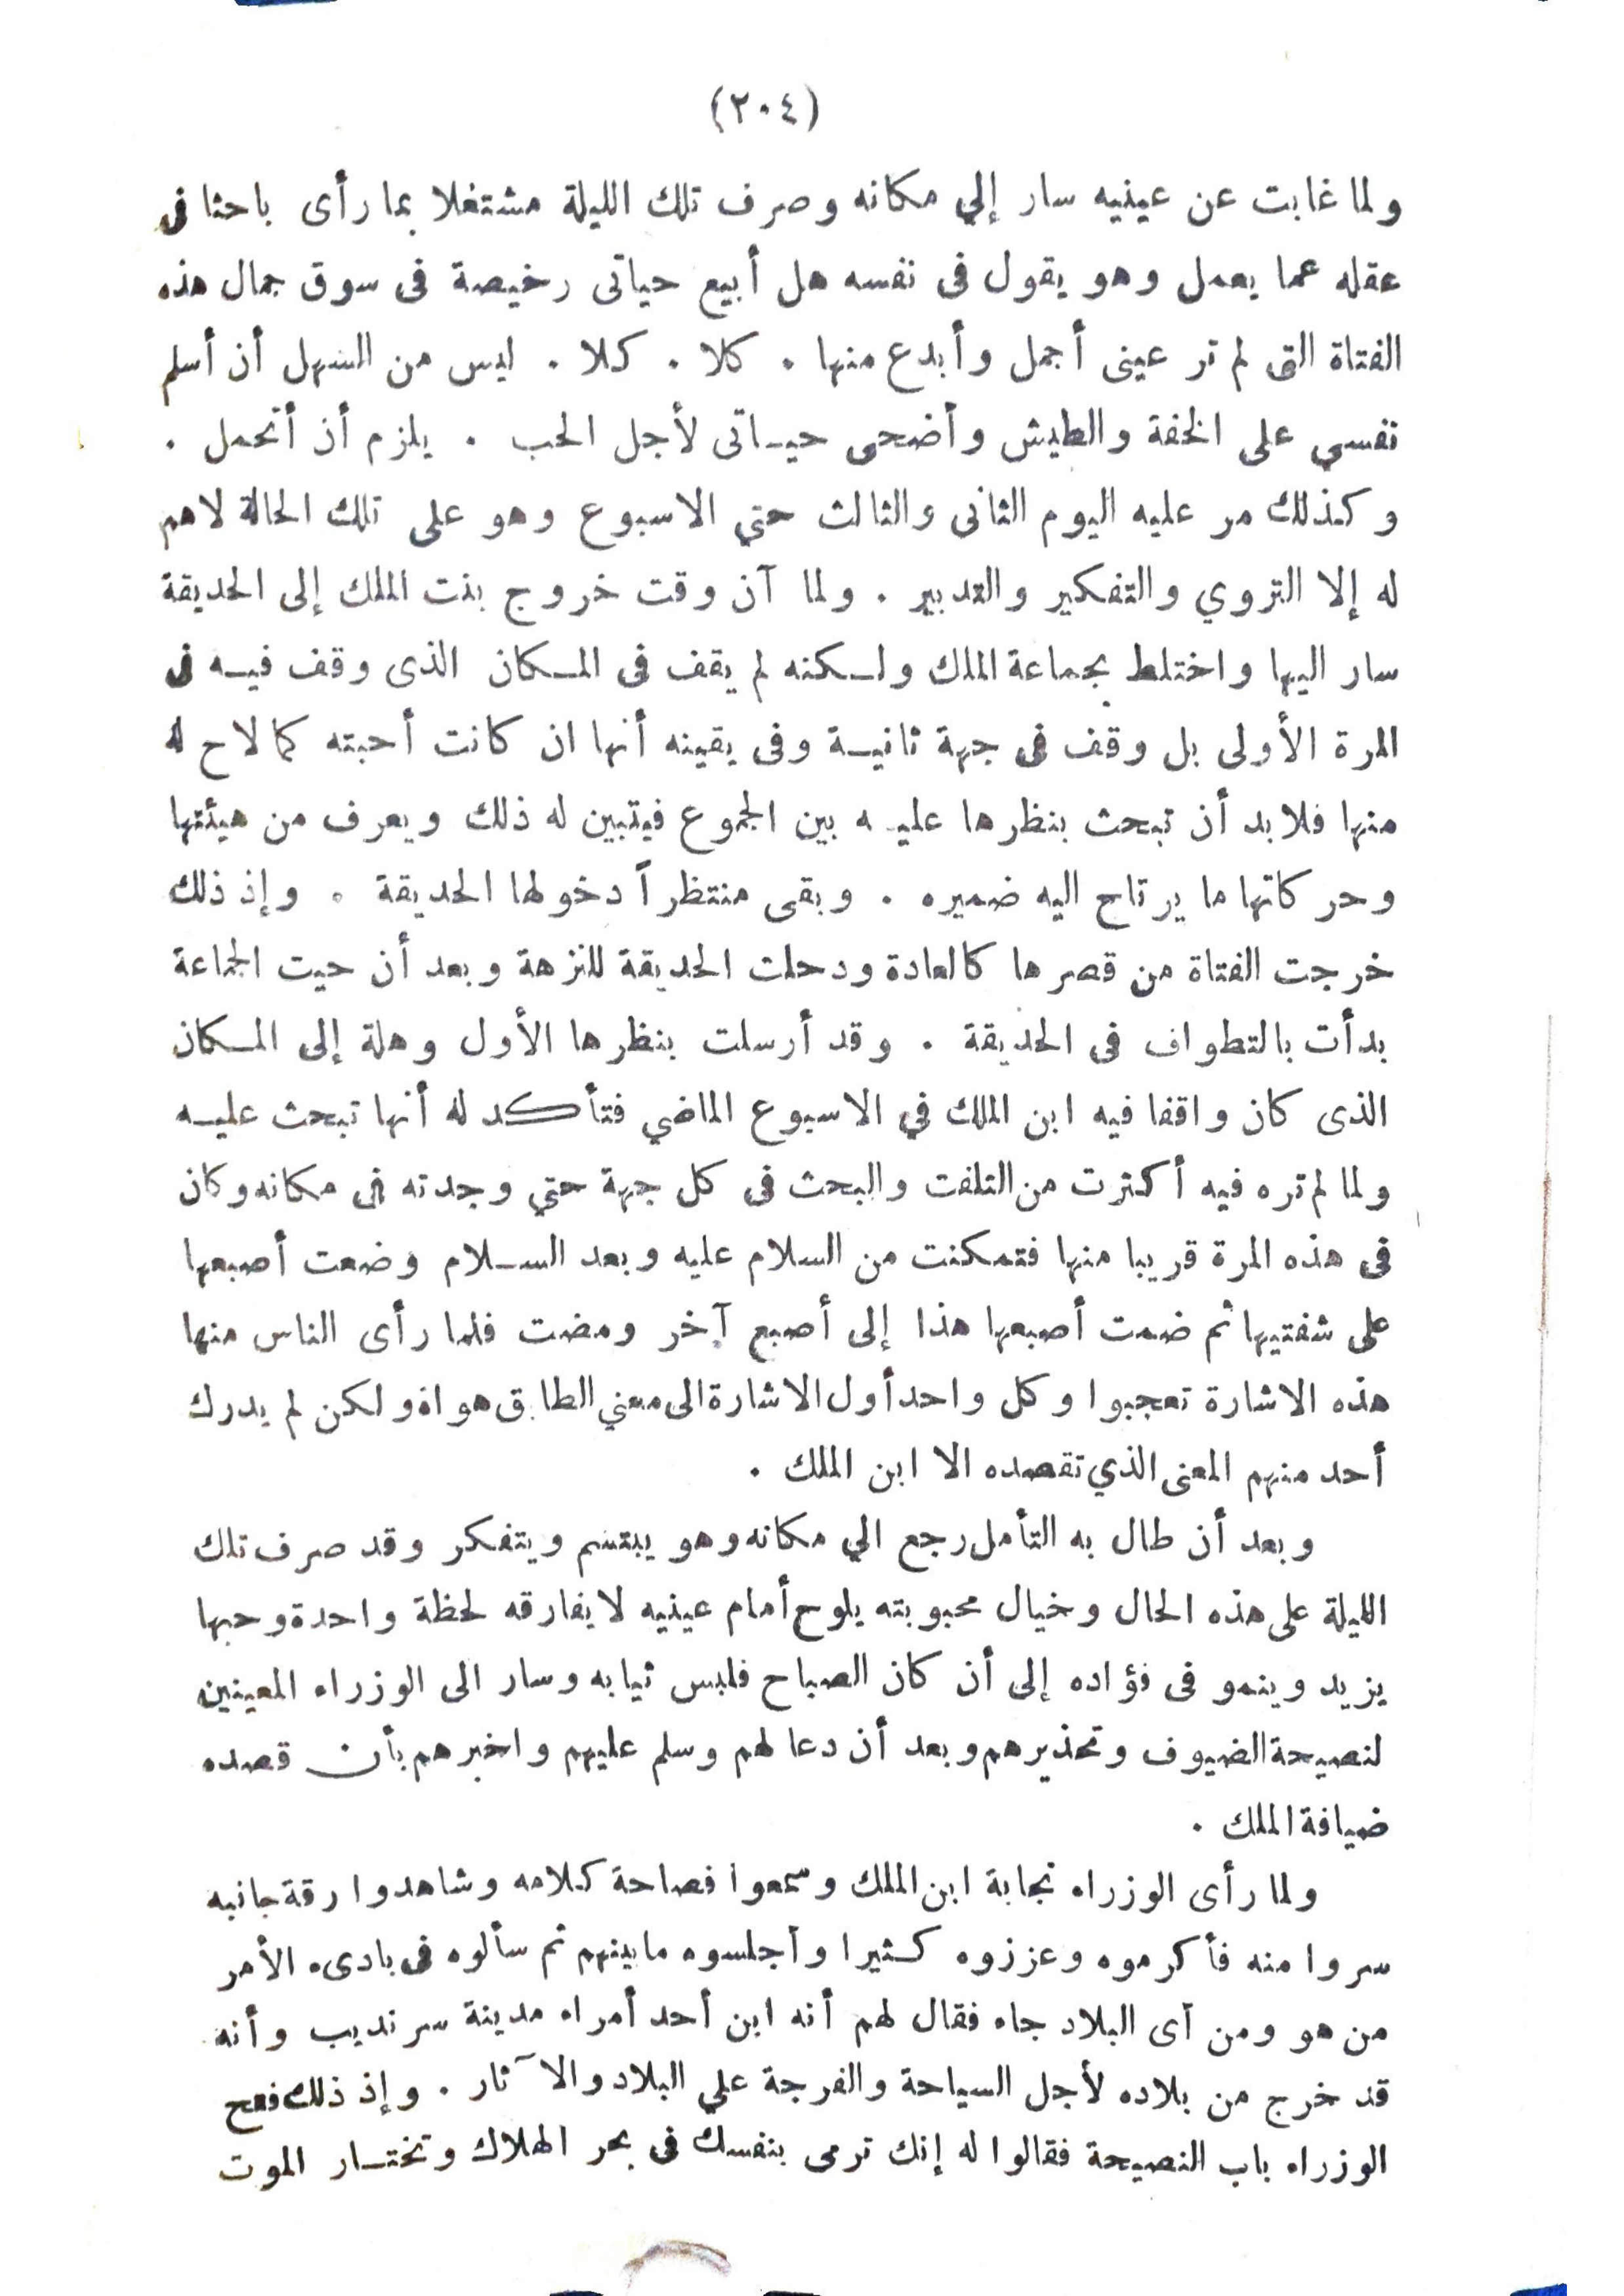 (٢٠٤)
ولما غابت عن عينيه سار إلي مكانه وصرف تلك الليلة مشتغلا بما رأى باحثا فى
عقله عما يعمل وهو يقول فى نفسه هل أبيع حياتى رخيصة فى سوق جمال هذه
الفتاة التى لم تر عينى أجمل وأبدع منها . كلا . كلا . ليس من السهل أن أسلم
نفسي على الخفة والطيش وأضحى حياتى لأجل الحب . يلزم أن أتحمل .
وكذلك مر عليه اليوم الثانى والثالث حتي الاسبوع وهو على تلك الحالة لاهم
له إلا التروي والتفكير والتدبير . ولما آن وقت خروج بنت الملك إلى الحديقة
سار اليها واختلط بجماعة الملك ولكنه لم يقف فى المكان الذى وقف فيه فى
المرة الأولى بل وقف فى جهة ثانية وفى يقينه أنها ان كانت أحبته كما لاح له
منها فلابد أن تبحث بنظرها عليه بين الجموع فيتبين له ذلك ويعرف من هيئتها
وحركاتها ما يرتاح اليه ضميره . وبقى منتظراً دخولها الحديقة . وإذ ذلك
خرجت الفتاة من قصرها كالعادة ودحلت الحديقة للنزهة وبعد أن حيت الجماعة
بدأت بالتطواف فى الحديقة . وقد أرسلت بنظرها الأول وهلة إلى المكان
الذى كان واقفا فيه ابن الملك في الاسبوع الماضي فتأكد له أنها تبحث عليه
ولما لم تره فيه أكثرت من التلفت والبحث فى كل جهة حتي وجدته فى مكانه وكان
فى هذه المرة قريبا منها فتمكنت من السلام عليه وبعد السلام وضعت أصبعها
على شفتيها ثم ضمت أصبعها هذا إلى أصبع آخر ومضت فلما رأى الناس منها
هذه الاشارة تعجبوا وكل واحد أول الاشارة الى معني الطابق هواه ولكن لم يدرك
أحد منهم المعنى الذي تقصده الا ابن الملك .
وبعد أن طال به التأمل رجع الي مكانه وهو يبتسم ويتفكر وقد صرف تلك
الليلة على هذه الحال وخيال محبوبته يلوح أمام عينيه لا يفارقه لحظة واحدة وحبها
يزيد وينمو فى فؤاده إلى أن كان الصباح فلبس ثيابه وسار الى الوزراء المعينين
لنصيحة الضيوف وتحذيرهم وبعد أن دعا لهم وسلم عليهم واخبرهم بأن قصده
ضيافة الملك .
ولما رأى الوزراء نجابة ابن الملك وسمعوا فصاحة كلامه وشاهدوا رقة جانبه
سروا منه فأكرموه وعززوه كثيرا وأجلسوه ما بينهم ثم سألوه فى بادىء الأمر
من هو ومن أى البلاد جاء فقال لهم أنه ابن أحد أمراء مدينة سرنديب وأنه
قد خرج من بلاده لأجل السياحة والفرجة علي البلاد والآثار . وإذ ذلك فتح
الوزراء باب النصيحة فقالوا له إنك ترمى بنفسك فى بحر الهلاك وتختار الموت